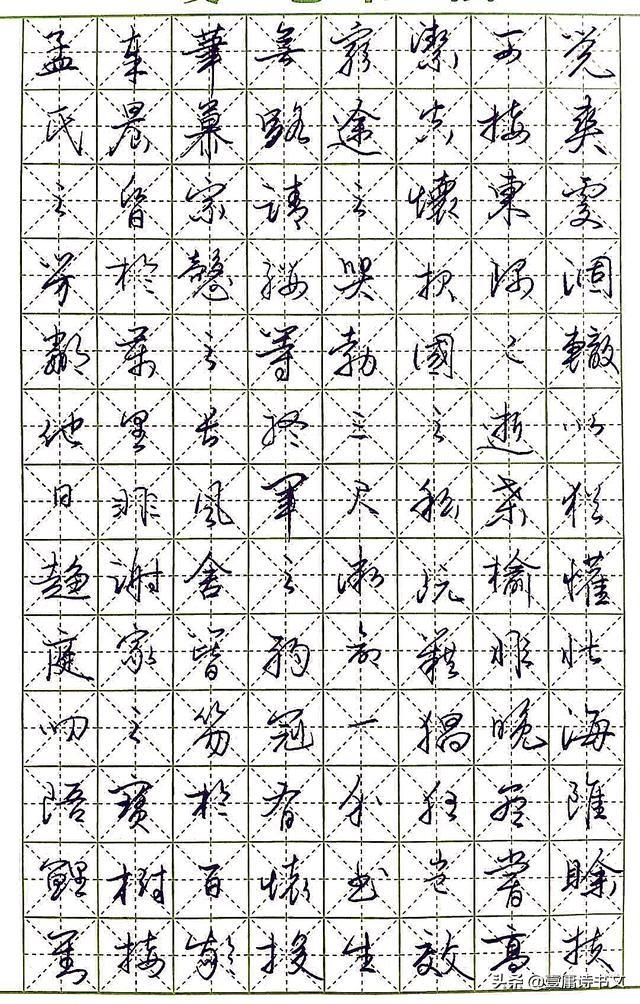 觉爽處涸轍以猶懽北海雖賒扶
可接東隅已逝桑榆非晚孟嘗高
潔空懷报國之阮籍猖狂豈效
窮途之哭勃三尺微命一介書生
無路請纓等終軍之弱冠有懷投
筆慕宗慤之長風舍簪笏於百齡
奉晨昏於萬里非謝家之寶樹接
孟氏之芳鄰他日趨庭叨陪鯉對
头条 @壹庸诗书文